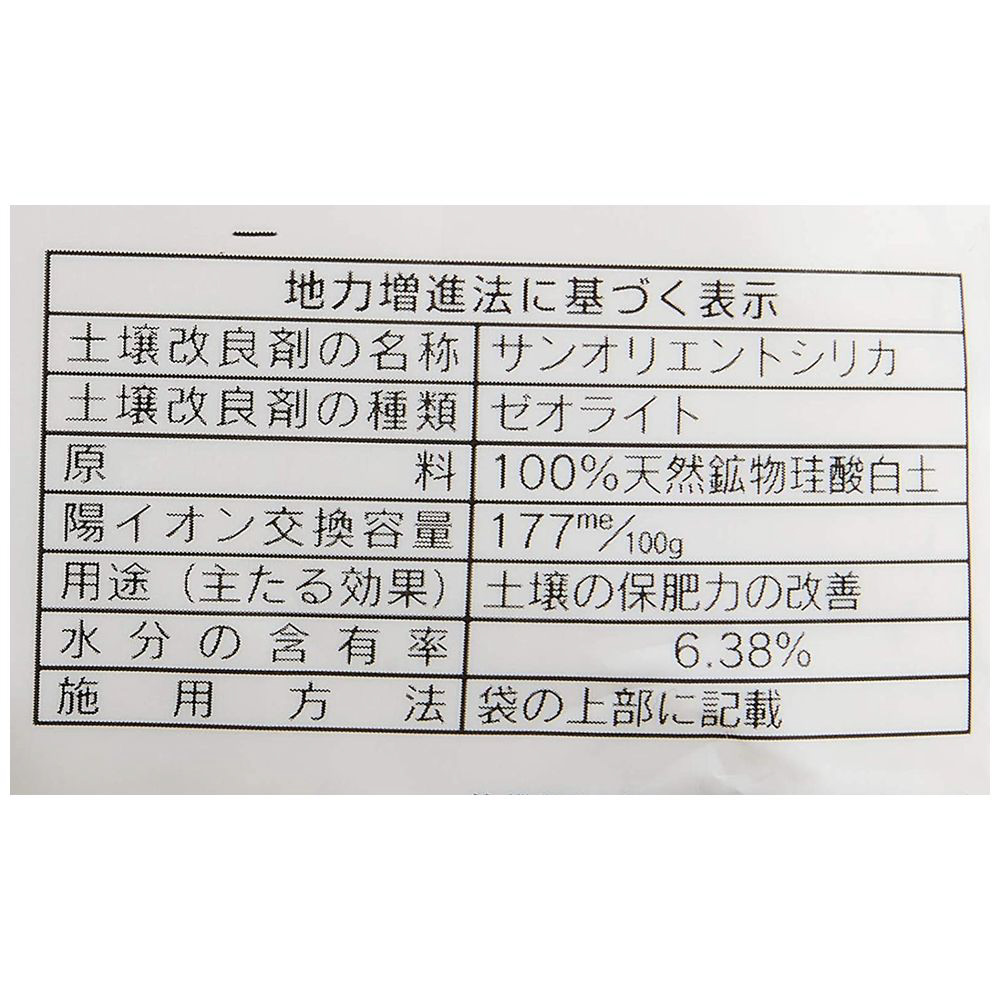 地力増進法に基づく表示
土壌改良剤の名称 サンオリエントシリカ
土壌改良剤の種類 ゼオライト
原料 100%天然鉱物珪酸白土
陽イオン交換容量 177me/100g
用途（主たる効果） 土壌の保肥力の改善
水分の含有率 6.38%
施用方法 袋の上部に記載